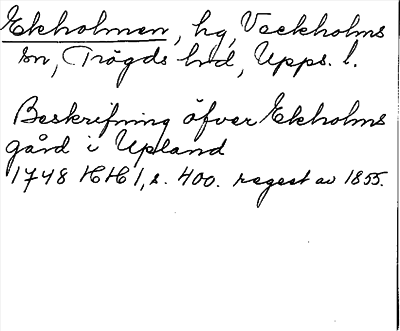 Ekholmen, hg, Veckholms
sn, Trögds hrd, Upps. l.
Beskrifning öfver Ekholms
gård i Upland
1748 HH 1, s. 400. regest av 1855.